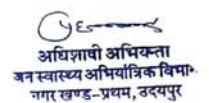 अधिशाषी अभियन्ता
जन स्वास्थ्य अभियांत्रिक विभाग
नगर खण्ड-प्रथम, उदयपुर